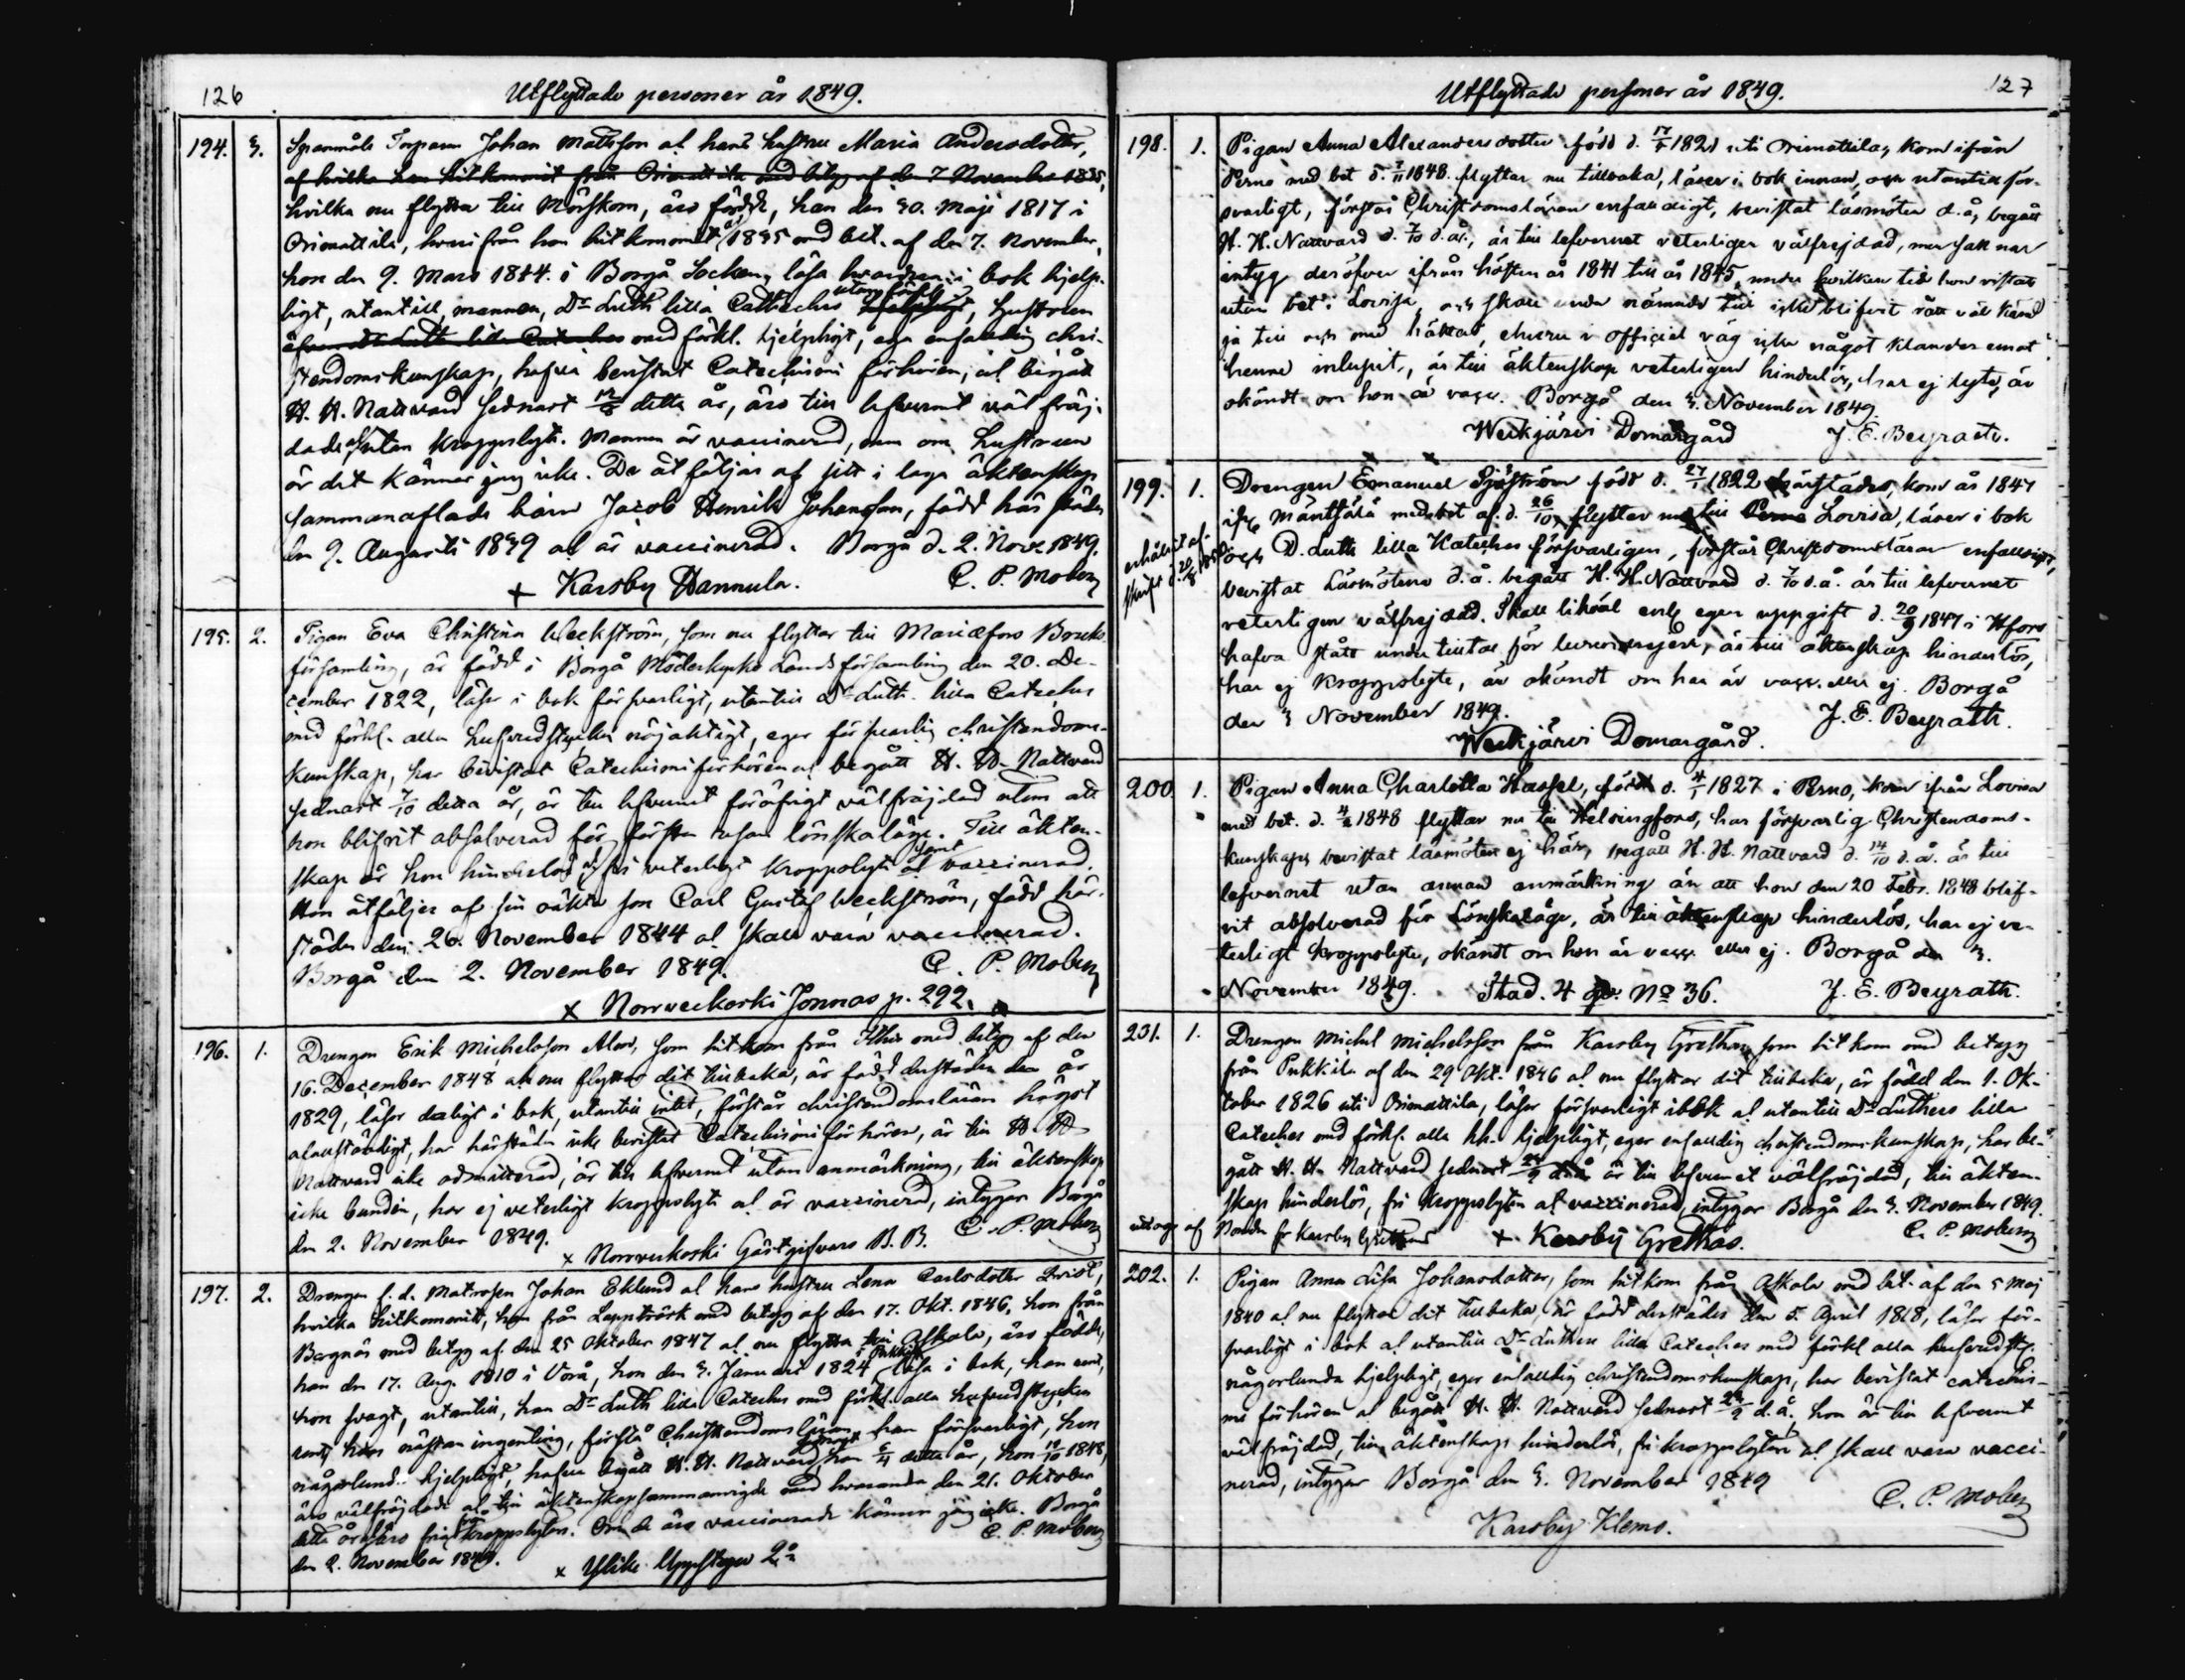 126
Utflyttade personer år 1849.
194. 3. Spanmåls Torparen Johan Mattsson ał hans hustru Maria Andersdotter,
af hvilka han hitkommit från Orimattila med betyg af den 7 November 1835,
hvilka nu flytta till Mörskom, äro födde, han den 30. Maji 1817 i
Orimattila, hvarifrån han hitkommit 1835 med bet. af den 7. November,
hon den 9. Mars 1814 i Borgå Socken, läsa hvardera i bok hjelp-
ligt, utantill, mannen, Dr Luth. lilla Catheches utan förkl., hustrun
äfven Dr Luth lilla Cateches med förkl. hjelpligt, ega enfaldig chri-
stendomskunskap, hafva bevistat Catechismi förhören, ał begått
H. H. Nattvard sednast detta år, äro till lefvernet väl fräj-
dade ał utan kroppslyte. Mannen är vaccinerad, men om hustrun
är det känner jag icke. De åtföljas af sitt i laga äktenskap
sammanaflade barn Jacob Henrik Johansson, född här städes
den 9. Augusti 1839 ał är vaccinerad. Borgå d. 2. Nov. 1849.
+ Karsby Hannula. C. P. Moberg
195. 2. Pigan Eva Christina Weckström, som nu flyttar till Mariæfors Bruks
församling, är född i Borgå Moderkyrko Landsförsamling den 20. De-
cember 1822, läser i bok försvarligt, utantill Dr Luth. lilla Cateches
med förkl. alla hufvudstycken nöjaktigt, eger försvarlig christendoms-
kunskap, har bevistat Catechismiförhören ał begått H. H. Nattvard
sednast 7/10 detta år, är till lefvernet föröfrigt välfräjdad utom att
hon blifvit absolverad för första resan lönskaläge. Till äkten-
skap är hon hinderlös ał fri veterligt kroppslyte samt vaccinerad.
Hon åtföljes af sin oäkta son Carl Gustaf Weckström, född här-
städes den 26. November 1844 ał skall vara vaccinerad.
Borgå den 2. November 1849. C. P. Moberg
x Norrveckoski Jonnas p. 292.
196. 1. Drengen Erik Michelsson Alen, som hitkom från Ithis med betyg af den
16. December 1848 ał nu flyttar dit tillbaka, är född derstädes den år
1829, läser dåligt i bok, utantill intet, förstår christendomsläran högst
ofullständigt, har härstädes icke bevistat Catechismiförhören, är till H. H.
Nattvard icke admitterad, är till lefvernet utan anmärkning, till äktenskap
icke bunden, har ej veterligt kroppslyte ał är vaccinerad, intygar Borgå
den 2. November 1849. C. P. Moberg
x Norrveckoski Gästgifvars B. B.
197. 2. Drengen f. d. Matrosen Johan Eklund ał hans hustru Lena Carlsdotter Qvist,
hvilka hitkommit, han från Lappträsk med betyg af den 17. Okt. 1846, hon från
Borgnäs med betyg af den 25 Oktober 1847 ał nu flytta till Askola, äro födde,
han den 17. Aug. 1810 i Vörå, hon den 3. Januari 1824 i Pukkila, läsa i bok, han rent,
hon svagt, utantill, han Dr Luth lilla Cateches med förkl. alla hufvudstycken
rent, hon nästan ingenting, förstå Christendomsläran, han försvarligt, hon
någorlunda hjelpligt, hafva begått H. H. Nattvard, han detta år, hon 1848,
äro välfräjdade ał till äktenskap sammanvigde med hvarandra den 21. Oktober
detta år ał äro fria från kroppslyten. Om de äro vaccinerade känner jag icke. Borgå
den 2. November 1849. C. P. Moberg
x Ylike Uppstegen 2
Utflyttade personer år 1849.
127
198. 1. Pigan Anna Alexandersdotter född d. 182 uti Orimattila, kom ifrån
Perno med bet d. 1848. flyttar nu tillbaka, läser i bok innan, och utantill för-
svarligt, förstår Christdomsläran enfaldigt, bevistat läsmöten d. å., begått
H. H. Nattvard d. 7/10 d. år., är till lefvernet veterligen välfrejdad, men saknar
intyg deröfver ifrån hösten år 1841 till år 1845, under hvilken tid hon vistats
utan bet i Lovisa, och skall under nämnde tid icke blifvit rätt väl känd
ja till och med häktad, ehuru i officiel väg icke något klander emot
henne inlupit, är till äktenskap veterligen hinderlös, har ej lyte, är
okändt om hon är vacc. Borgå den 3. November 1849.
Weckjärvi Domargård J. E. Beyrath.
199. 1. Drengen Emanuel Sjöström född d. 27/1 1822 härstädes, kom år 1847
ifrå Mäntsälä med bet af d. 26/10, flyttar nu till Perno Lovisa, läser i bok
och D. Luth lilla Kateches försvarligen, förstår Christdomsläran enfaldigt,
bevistat Läsmötena d. å. begått H. H. Nattvard d. 7/10 d. å. är till lefvernet
veterligen välfrejdad. Skall likväl enl. egen uppgift d. 20/9 1847 i Hfors
hafva stått under tilltal för , är till äktenskap hinderlös,
har ej kroppslyte, är okändt om han är vacc. eller ej. Borgå
den 3 November 1849. J. E. Beyrath.
Weckjärvi Domargård.
200 1. Pigan Anna Charlotta Hassel, född d. 4/1 1827 i Perno, kom ifrån Lovisa
med bet. d. 1848 flyttar nu till Helsingfors, har försvarlig Christendoms-
kunskap, bevistat läsmöten ej här, begått H. H. Nattvard d. 14/10 d. å. är till
lefvernet utan annan anmärkning än att hon den 20 Febr. 1848 blif-
vit absolverad för Lönskaläge, är till äktenskap hinderlös, har ej ve-
terligt kroppslyte, okändt om hon är vacc. eller ej. Borgå den 3.
November 1849. Stad. 4 qv. No 36. J. E. Beyrath.
201. 1. Drengen Michel Michelsson från Karsby Grethas, som hitkom med betyg
från Pukkila af den 29 Okt. 1846 ał nu flyttar dit tillbaka, är född den 1. Ok-
tober 1826 uti Orimattila, läser försvarligt i bok ał utantill Dr Luthers lilla
Cateches med förkl. alla hh. hjelpligt, eger enfaldig christendomskunskap, har be-
gått H. H. Nattvard sednast d. å. är till lefvernet välfräjdad, till äkten-
skap hinderlös, fri kroppslyten ał vaccinerad, intygar Borgå den 3. November 1849.
x Karsby Grethas. C. P. Moberg
202. 1. Pigan Anna Lisa Johansdotter, som hitkom från Askola med bet. af den 5 Maj
1840 ał nu flyttar dit tillbaka, är född derstädes den 5. April 1818, läser för-
svarligt i bok ał utantill Dr Luthers lilla Cateches med förkl alla hufvudst.
någorlunda hjelpligt, eger enfaldig christendomskunskap, har bevistat catechis-
mi förhören ał begått H. H. Nattvard sednast d. å. hon är till lefvernet
välfräjdad, till äktenskap hinderlös, fri kroppslyten ał skall vara vacci-
nerad, intygar Borgå den 3. November 1849
C. P. Moberg
Karsby Klems.